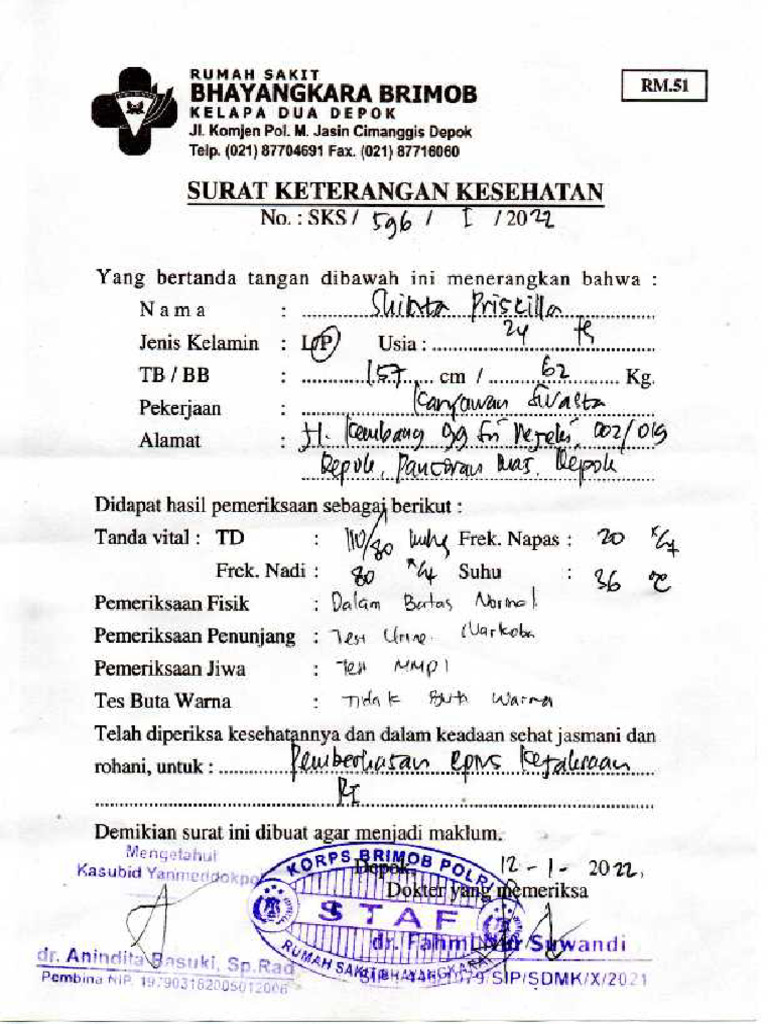 RUMAH SAKIT
BHAYANGKARA BRIMOB
KELAPA DUA DEPOK
Jl. Komjen Pol. M. Jasin Cimanggis Depok
Telp. (021) 87704691 Fax. (021) 87716060
RM.51
SURAT KETERANGAN KESEHATAN
No. : SKS / 596 / I / 2022
Yang bertanda tangan dibawah ini menerangkan bahwa :
Nama : Priscilla
Jenis Kelamin : L/P Usia : 24 th
TB / BB : 157 cm / 62 Kg.
Pekerjaan : Karyawan Swasta
Alamat : Jl. Kembang gg Sri Rejeki, 002/019
Depok, Pancoran Mas, Depok
Didapat hasil pemeriksaan sebagai berikut :
Tanda vital : TD : 110/80 mmhg Frek. Napas : 20 x/
Frek. Nadi : 80 x/ Suhu : 36 °C
Pemeriksaan Fisik : Dalam Batas Normal
Pemeriksaan Penunjang : Test Urine Narkoba
Pemeriksaan Jiwa : Test MMPI
Tes Buta Warna : Tidak Buta Warna
Telah diperiksa kesehatannya dan dalam keadaan sehat jasmani dan
rohani, untuk : Pemberkasan CPNS Kejaksaan
RI
Demikian surat ini dibuat agar menjadi maklum.
Mengetahui
Kasubid Yanmeddokpol
Depok, 12 - 1 - 2022
Dokter yang memeriksa
KORPS BRIMOB POLRI
STAF
RUMAH SAKIT BHAYANGKARA
dr. Anindita Basuki, Sp.Rad
Pembina NIP. 197903162005012006
dr. Fahmi Suwandi
SIP/SDMK/X/2021